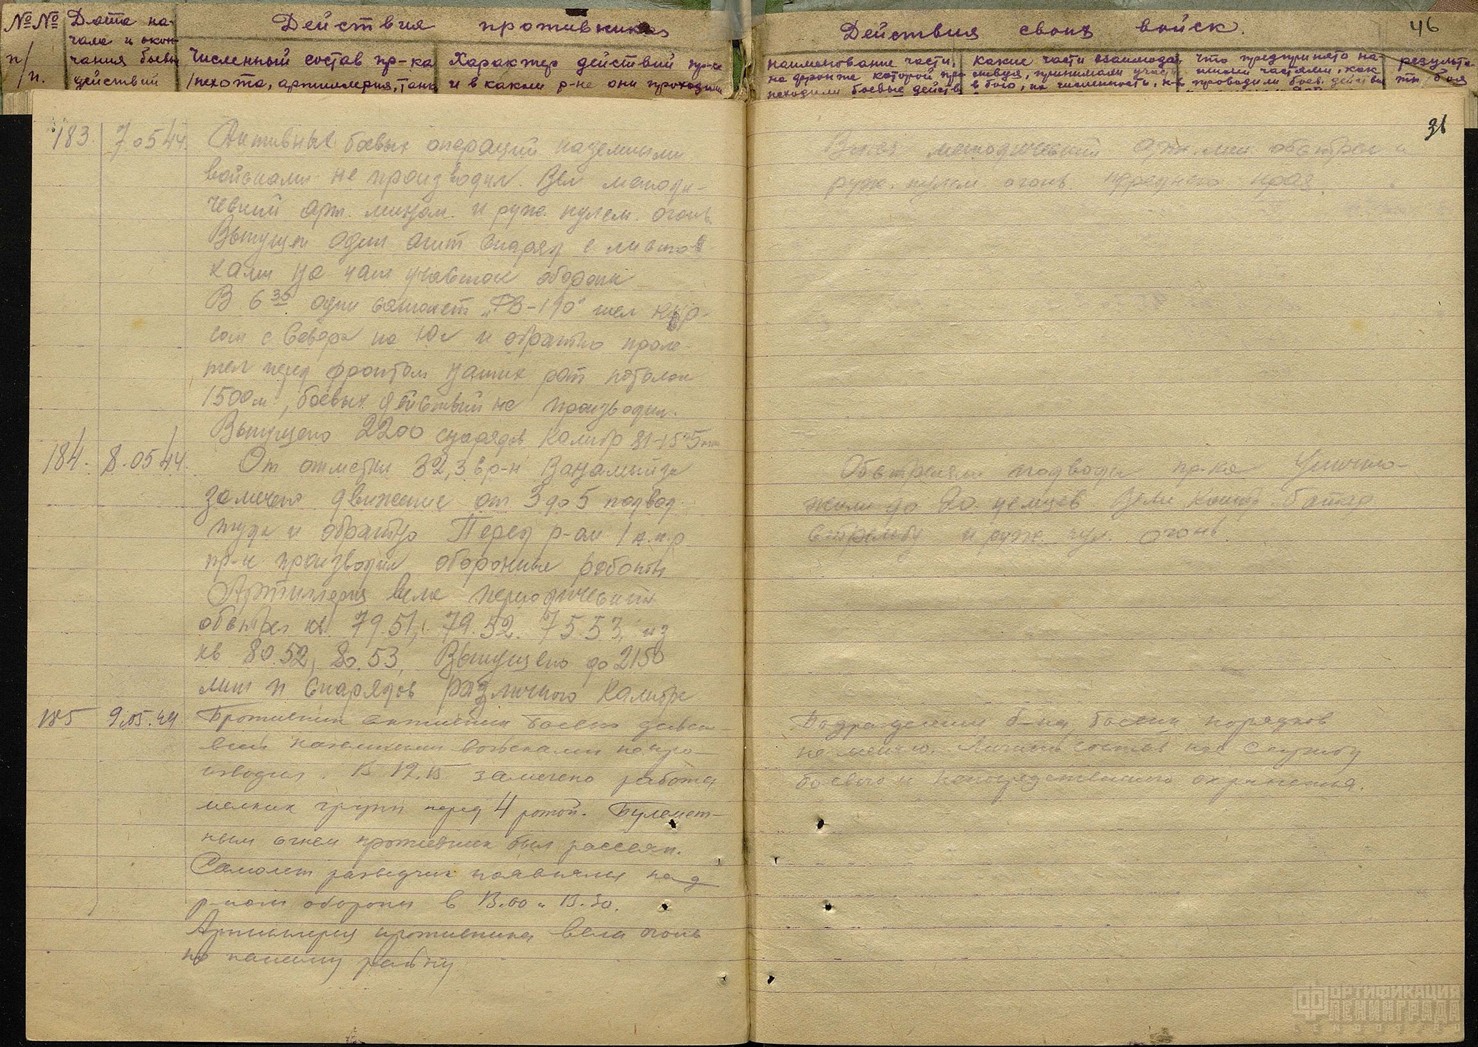 №№ п/п.
Дата начала и окончания боевых действий
Действия противника
Численный состав пр-ка
/пехота, артиллерия, танки
Характер действий
и в каком р-не они проходили
Действия своих войск.
46
наименование части,
на фронте которой
боевые действ
какие части взаимодей
принимали участ
в бою, их численность,
что предпринято на-
шими частями, как
проводили боев. действ
результа-
ты боя
31
183 7.05.44. Активных боевых операций наземными
войсками не производил. Вел методи-
ческий арт. мином. и руж. пулем. огонь
Выпущен один агит снаряд с листов-
ками на наш участок обороны
В 6 30 один самолет „ФВ-190" шел кур-
сом с Севера на Юг и обратно проле-
тел перед фронтом наших рот потолок
1500 м, боевых действий не производил.
Выпущено 2200 снарядов калибр 81-155 мм
Вели методический арт. мин. обстрел и
руж. пулем. огонь переднего края.
184. 8.05.44. От отметки 32,3 в р-н
замечено движение от 3 до 5 подвод
туда и обратно Перед р-ом 1
пр-к производил оборонные работы
Артиллерия вела периодический
обстрел кв. 79.51, 79.52. 75.53, из
кв. 80.52, 80.53, Выпущено до 2150
мин и снарядов различного калибра
Обстреляли подводы пр-ка Уничто-
жили до 20 немцев Вели
стрельбу и руж. пул. огонь.
185 9.05.44 Противник активных боевых дейст-
вий наземными войсками не про-
изводил. В 12.15 замечена работа
мелких групп перед 4 ротой. Пулемет-
ным огнем противник был рассеян.
Самолет разведчик появлялся над
р-ном обороны в 13.00 и 13.30.
Артиллерия противника вела огонь
по нашему району
Подразделения б-на боевых порядков
не меняли. Личный состав нес службу
боевого и непосредственного охранения.
ФОРТИФИКАЦИЯ
ЛЕНИНГРАДА